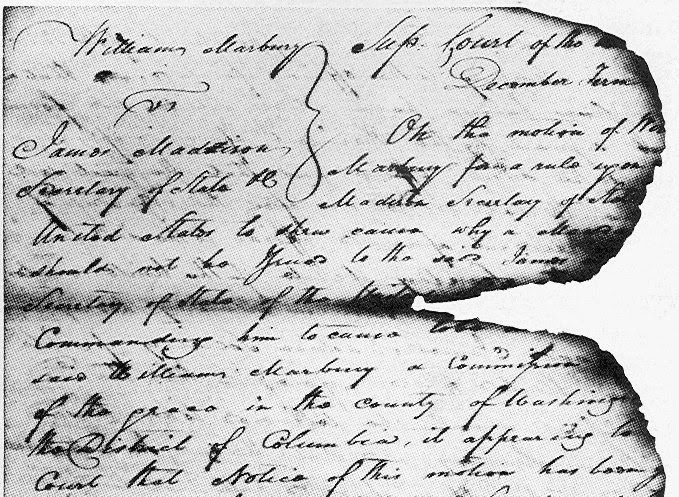 William Marbury } Sup. Court of the
December Term
vs
James Maddison
Secretary of State
On the motion of
Marbury for a rule upon
Madison Secretary of State
United States to shew cause why a
should not be Issued to the said James
Secretary of State of the
Commanding him to cause to be
said William Marbury a Commission
of the peace in the county of Washing
the District of Columbia, it appearing to
Court that Notice of this motion has been